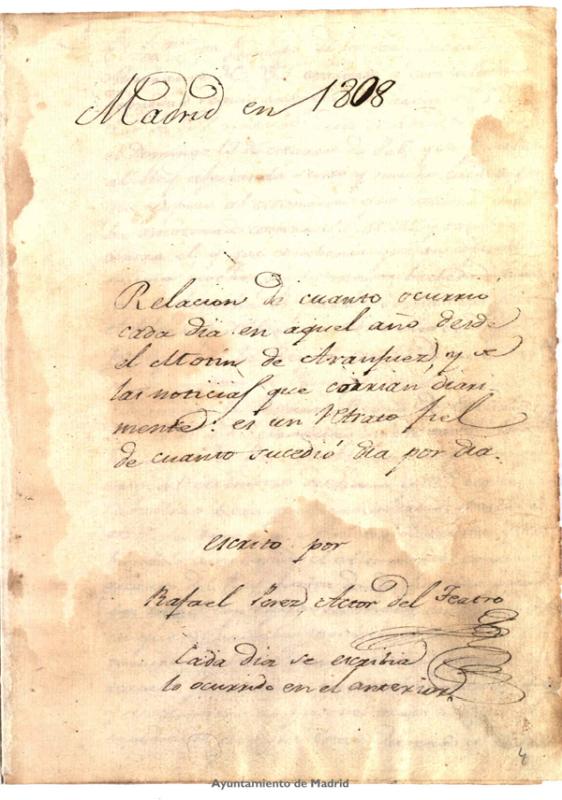 Madrid en 1808
Relacion de cuanto ocurrió
cada dia en aquel año desde
el Motin de Aranjuez, y de
las noticias que corrian diari-
mente: es un retrato fiel
de cuanto sucedió dia por dia.
escrito por
Rafael Perez, Actor del Teatro
Cada dia se escribia
lo ocurrido en el anterior.
4
Ayuntamiento de Madrid